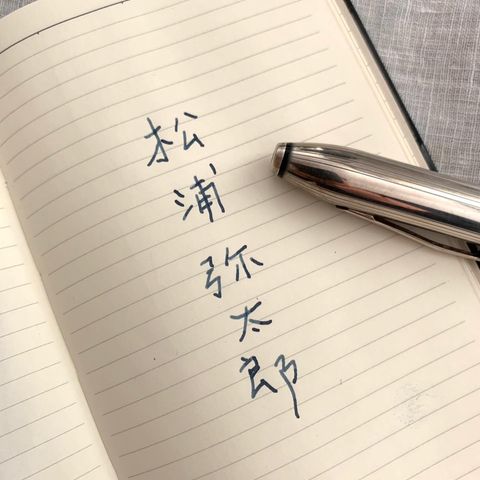 松浦弥太郎